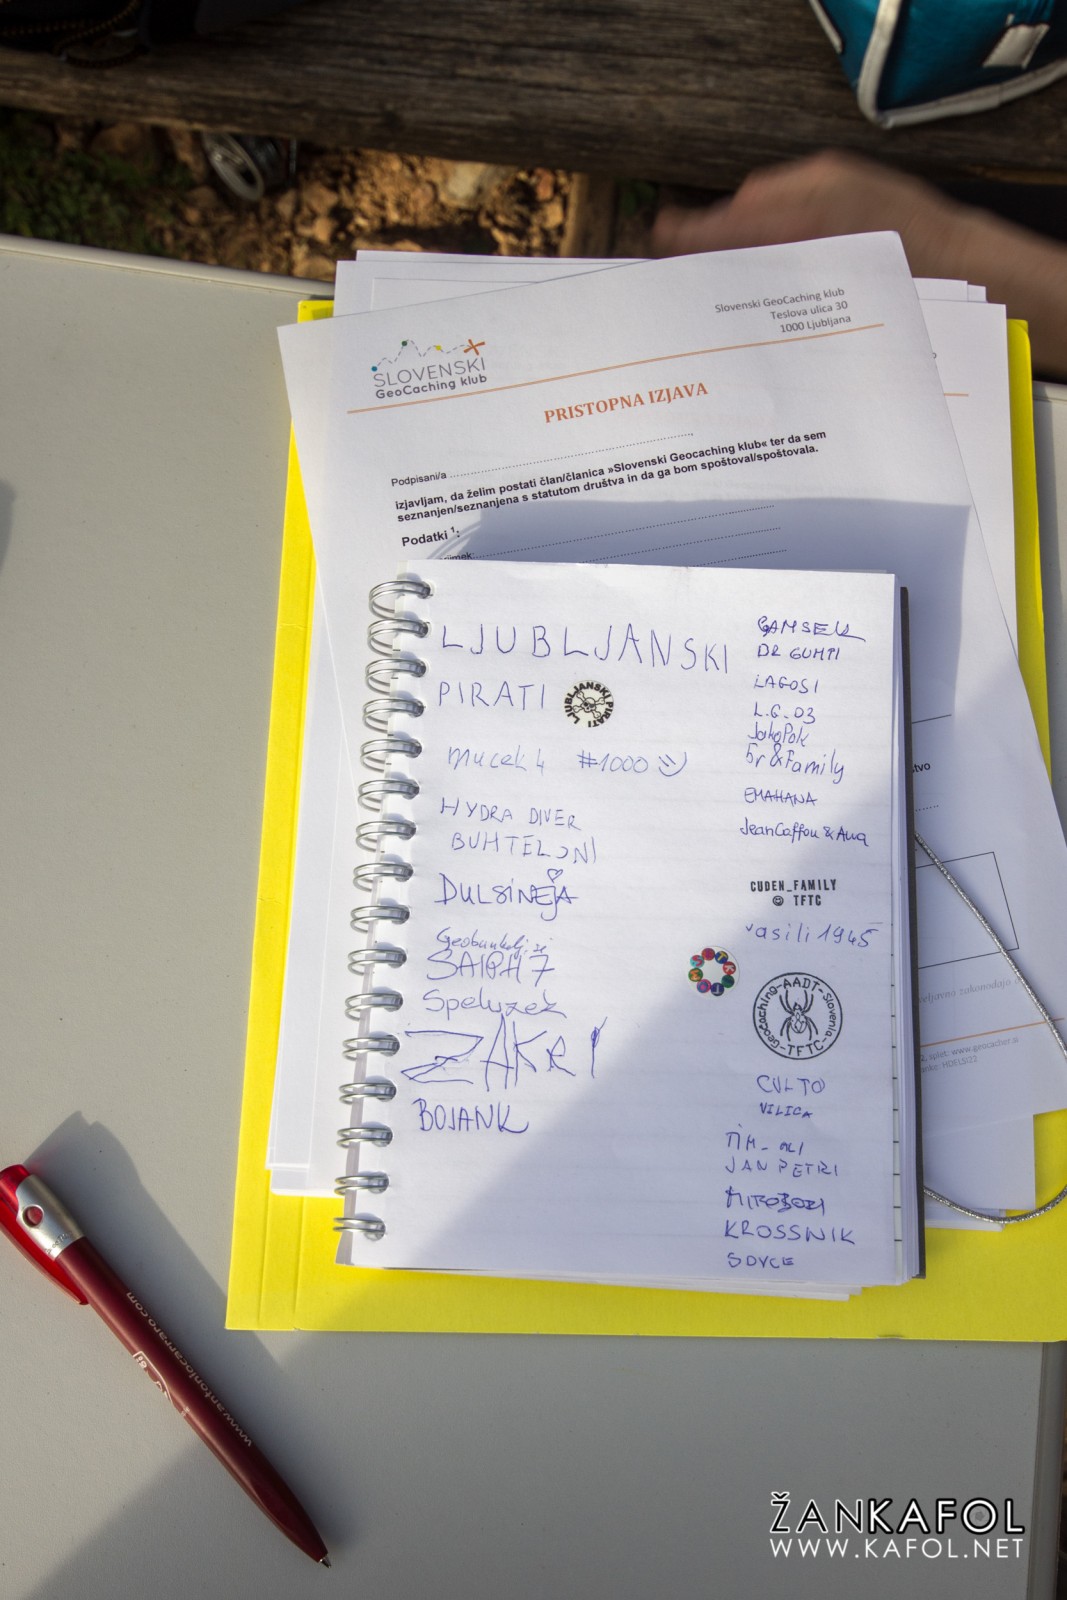 Slovenski GeoCaching klub
Teslova ulica 30
1000 Ljubljana
SLOVENSKI
GeoCaching klub
PRISTOPNA IZJAVA
Podpisani/a ...............................................................,
izjavljam, da želim postati član/članica »Slovenski Geocaching klub« ter da sem
seznanjen/seznanjena s statutom društva in da ga bom spoštoval/spoštovala.
Podatki 1:
LJUBLJANSKI
PIRATI
LJUBLJANSKI PIRATI
mucek4 #1000
HYDRA DIVER
BUHTELJNI
DULSINEJA
SAIPH7
Spelyzek
ZAKRI
BOJANK
GAMSEK
DR GUMPI
LAGOSI
L.G.03
JakaPok
Fr&Family
EMAHANA
JeanCaffou & Ava
CUDEN_FAMILY
☺ TFTC
vasili1945
Geocaching-AADT-Slovenia
-TFTC-
CULTO
VILICA
JAN PETRI
KROSSNIK
SOVCE
www.antoniocarraro.com
ŽANKAFOL
WWW.KAFOL.NET